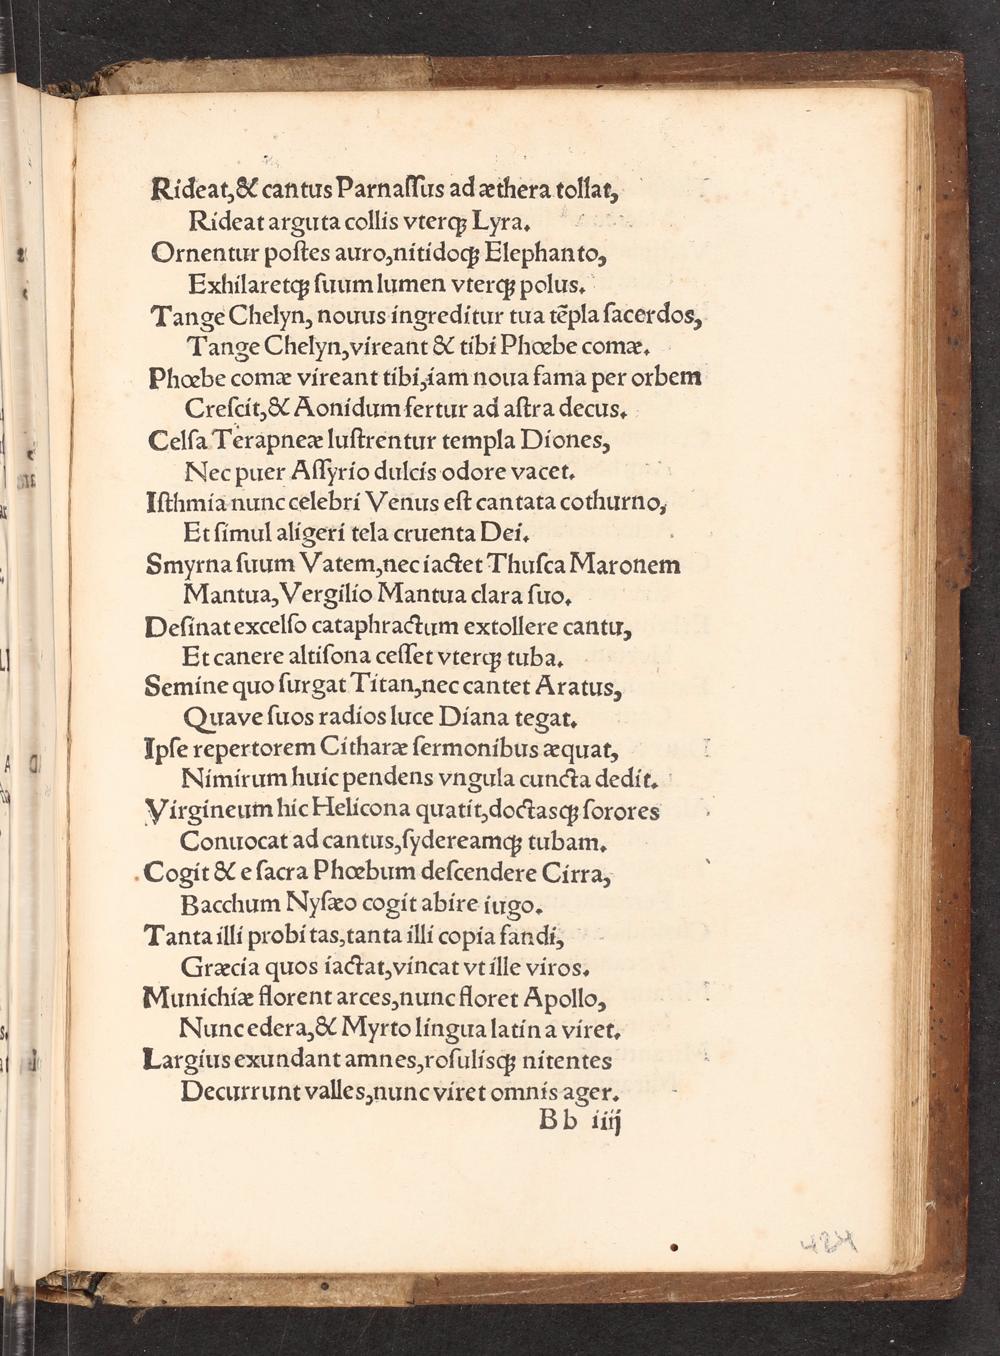 Rideat,& cantus Parnaſſus ad æthera tollat,
Rideat arguta collis vterqꝫ Lyra.
Ornentur poſtes auro,nitidoqꝫ Elephanto,
Exhilaretqꝫ ſuum lumen vterqꝫ polus.
Tange Chelyn, nouus ingreditur tua tẽpla ſacerdos,
Tange Chelyn,vireant & tibi Phœbe comæ.
Phœbe comæ vireant tibi,iam noua fama per orbem
Creſcit,& Aonidum fertur ad aſtra decus.
Celſa Terapneæ luſtrentur templa Diones,
Nec puer Aſſyrio dulcis odore vacet.
Iſthmia nunc celebri Venus eſt cantata cothurno,
Et ſimul aligeri tela cruenta Dei.
Smyrna ſuum Vatem,nec iactet Thuſca Maronem
Mantua,Vergilio Mantua clara ſuo.
Deſinat excelſo cataphractum extollere cantu,
Et canere altiſona ceſſet vterqꝫ tuba.
Semine quo ſurgat Titan,nec cantet Aratus,
Quave ſuos radios luce Diana tegat.
Ipſe repertorem Citharæ ſermonibus æquat,
Nimirum huic pendens vngula cuncta dedit.
Virgineum hic Helicona quatit,doctasqꝫ ſorores
Conuocat ad cantus,ſydereamqꝫ tubam.
Cogit & e ſacra Phœbum deſcendere Cirra,
Bacchum Nyſæo cogit abire iugo.
Tanta illi probitas,tanta illi copia fandi,
Græcia quos iactat,vincat vt ille viros.
Munichiæ florent arces,nunc floret Apollo,
Nunc edera,& Myrto lingua latina viret.
Largius exundant amnes,roſulisqꝫ nitentes
Decurrunt valles,nunc viret omnis ager.
Bb iiij
424